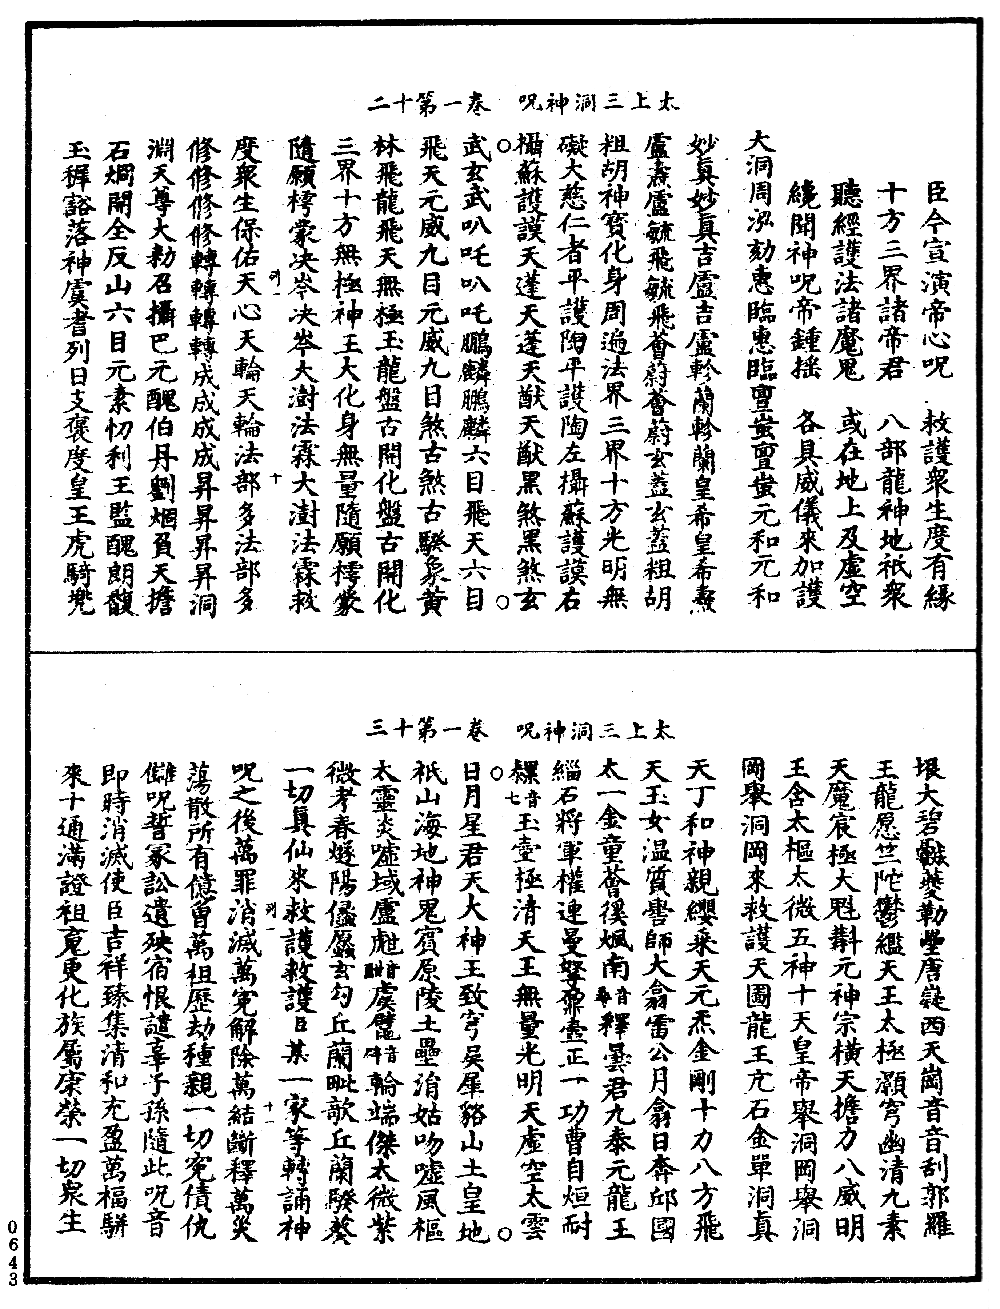 太上三洞神呪　卷一第十二
臣今宣演帝心呪　救護衆生度有緣
十方三界諸帝君　八部龍神地祇衆
聽經護法諸魔鬼　或在地上及虛空
纔聞神呪帝鍾摇　各具威儀來加護
大洞周泓劾惠臨惠臨亶蚩亶蚩元和元和
妙眞妙眞吉盧吉盧軫蘭軫蘭皇希皇希燾
盧燾盧毓飛毓飛薈蔚薈蔚玄蓋玄蓋粗胡
粗胡神寳化身周遍法界三界十方光明無
礙大慈仁者平護陶平護陶左攝蘇護謨右
攝蘇護謨天蓬天蓬天猷天猷黑煞黑煞玄
武玄武叭吒叭吒鵬麟鵬麟六目飛天六目
飛天元威九目元威九目煞古煞古騤象黃
林飛龍飛天無極玉龍盤古開化盤古開化
三界十方無極神王大化身無量隨願樗蒙
隨願樗蒙决岑决岑大澍法霖大澍法霖救
度衆生保佑天心天輪天輪法部多法部多
修修修修轉轉轉轉成成成成昇昇昇昇洞
淵天尊大勑召攝巴元醜伯丹劉烟負天擔
石焗開全反山六目元素忉利王監醜朗馥
玉樨豁落神虞耆列日支褒度皇王虎騎兠
太上三洞神呪　卷一第十三
垠大碧黻夔勒壘唐嶷西天崗音音刮郭羅
王龍愿竺陀鬱艦天王太極灝穹幽清九素
天魔宸極大魁㪺元神宗橫天擔力八威明
王舍太樞太微五神十天皇帝舉洞岡舉洞
岡舉洞岡來救護天圖龍王亢石金單洞眞
天丁和神親纓乘天元炁金剛十力八方飛
天玉女温質嚳師大翕雷公月翕日奔邱國
太一金童薈徯颯南音尋釋曇君九泰元龍王
緇石將軍權連曼拏鼏盡正一功曹自烜耐
𫁉音七玉壺極清天王無量光明天虛空太雲
日月星君天大神王致穹吳犀豁山土皇地
祇山海地神鬼賓原陵土壘消姑吻噓風樞
太靈炎噓域盧虪音䖙虞躄音輪端傑太微紫
微考春燧陽儡靨玄勾丘蘭毗歆丘蘭騤葵
一切眞仙來救護救護臣某一家等轉誦神
呪之後萬罪消滅萬冤解除萬結斷釋萬災
蕩散所有億曾萬祖歷劫種親一切冤債仇
讎呪誓冢訟遺殃宿恨譴辜子孫隨此呪音
即時消滅使臣吉祥臻集清和充盈萬福駢
來十通滿證祖䰟更化族屬康榮一切衆生
0643